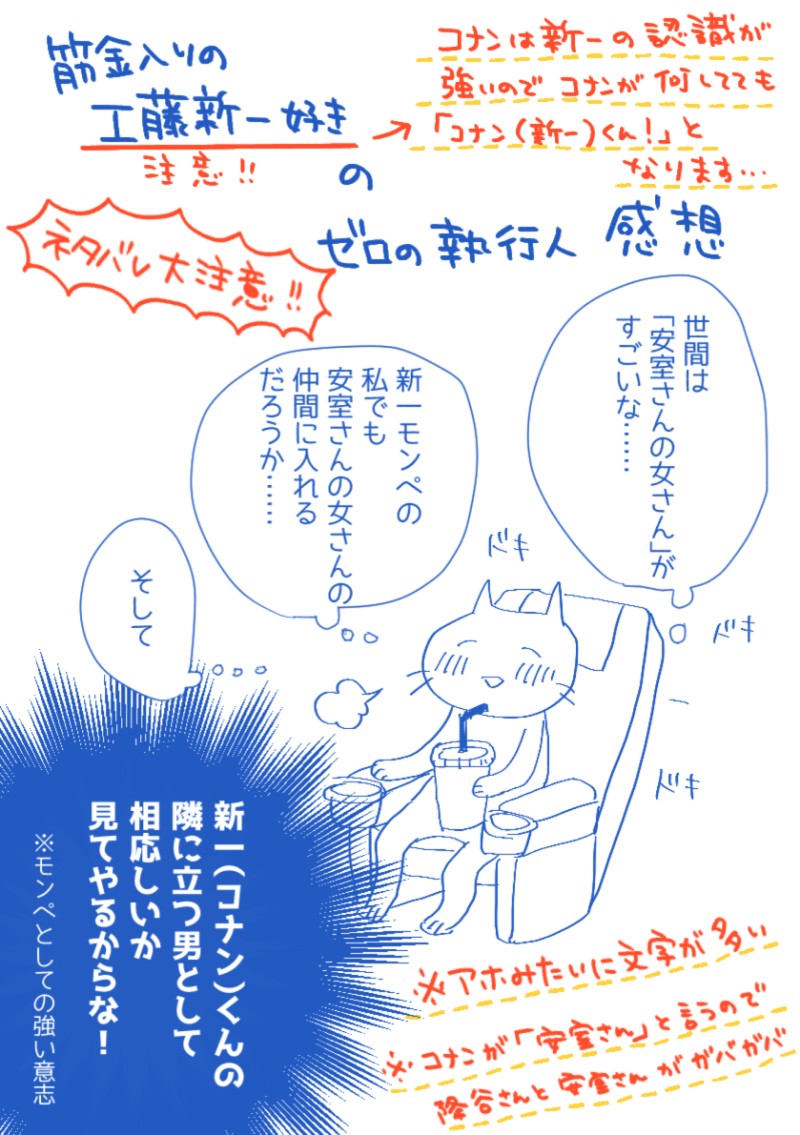 筋金入りの
工藤新一好き
注意!!
の
コナンは新一の認識が
強いのでコナンが何してても
「コナン(新一)くん!」と
なります…
ゼロの執行人 感想
ネタバレ大注意!!
世間は
「安室さんの女さん」が
すごいな……
新一モンペの
私でも
安室さんの女さんの
仲間に入れる
だろうか……
ドキ
ドキ
ドキ
そして
新一(コナン)くんの
隣に立つ男として
相応しいか
見てやるからな!
※モンペとしての強い意志
※アホみたいに文字が多い
※コナンが「安室さん」と言うので
降谷さんと安室さんがガバガバ